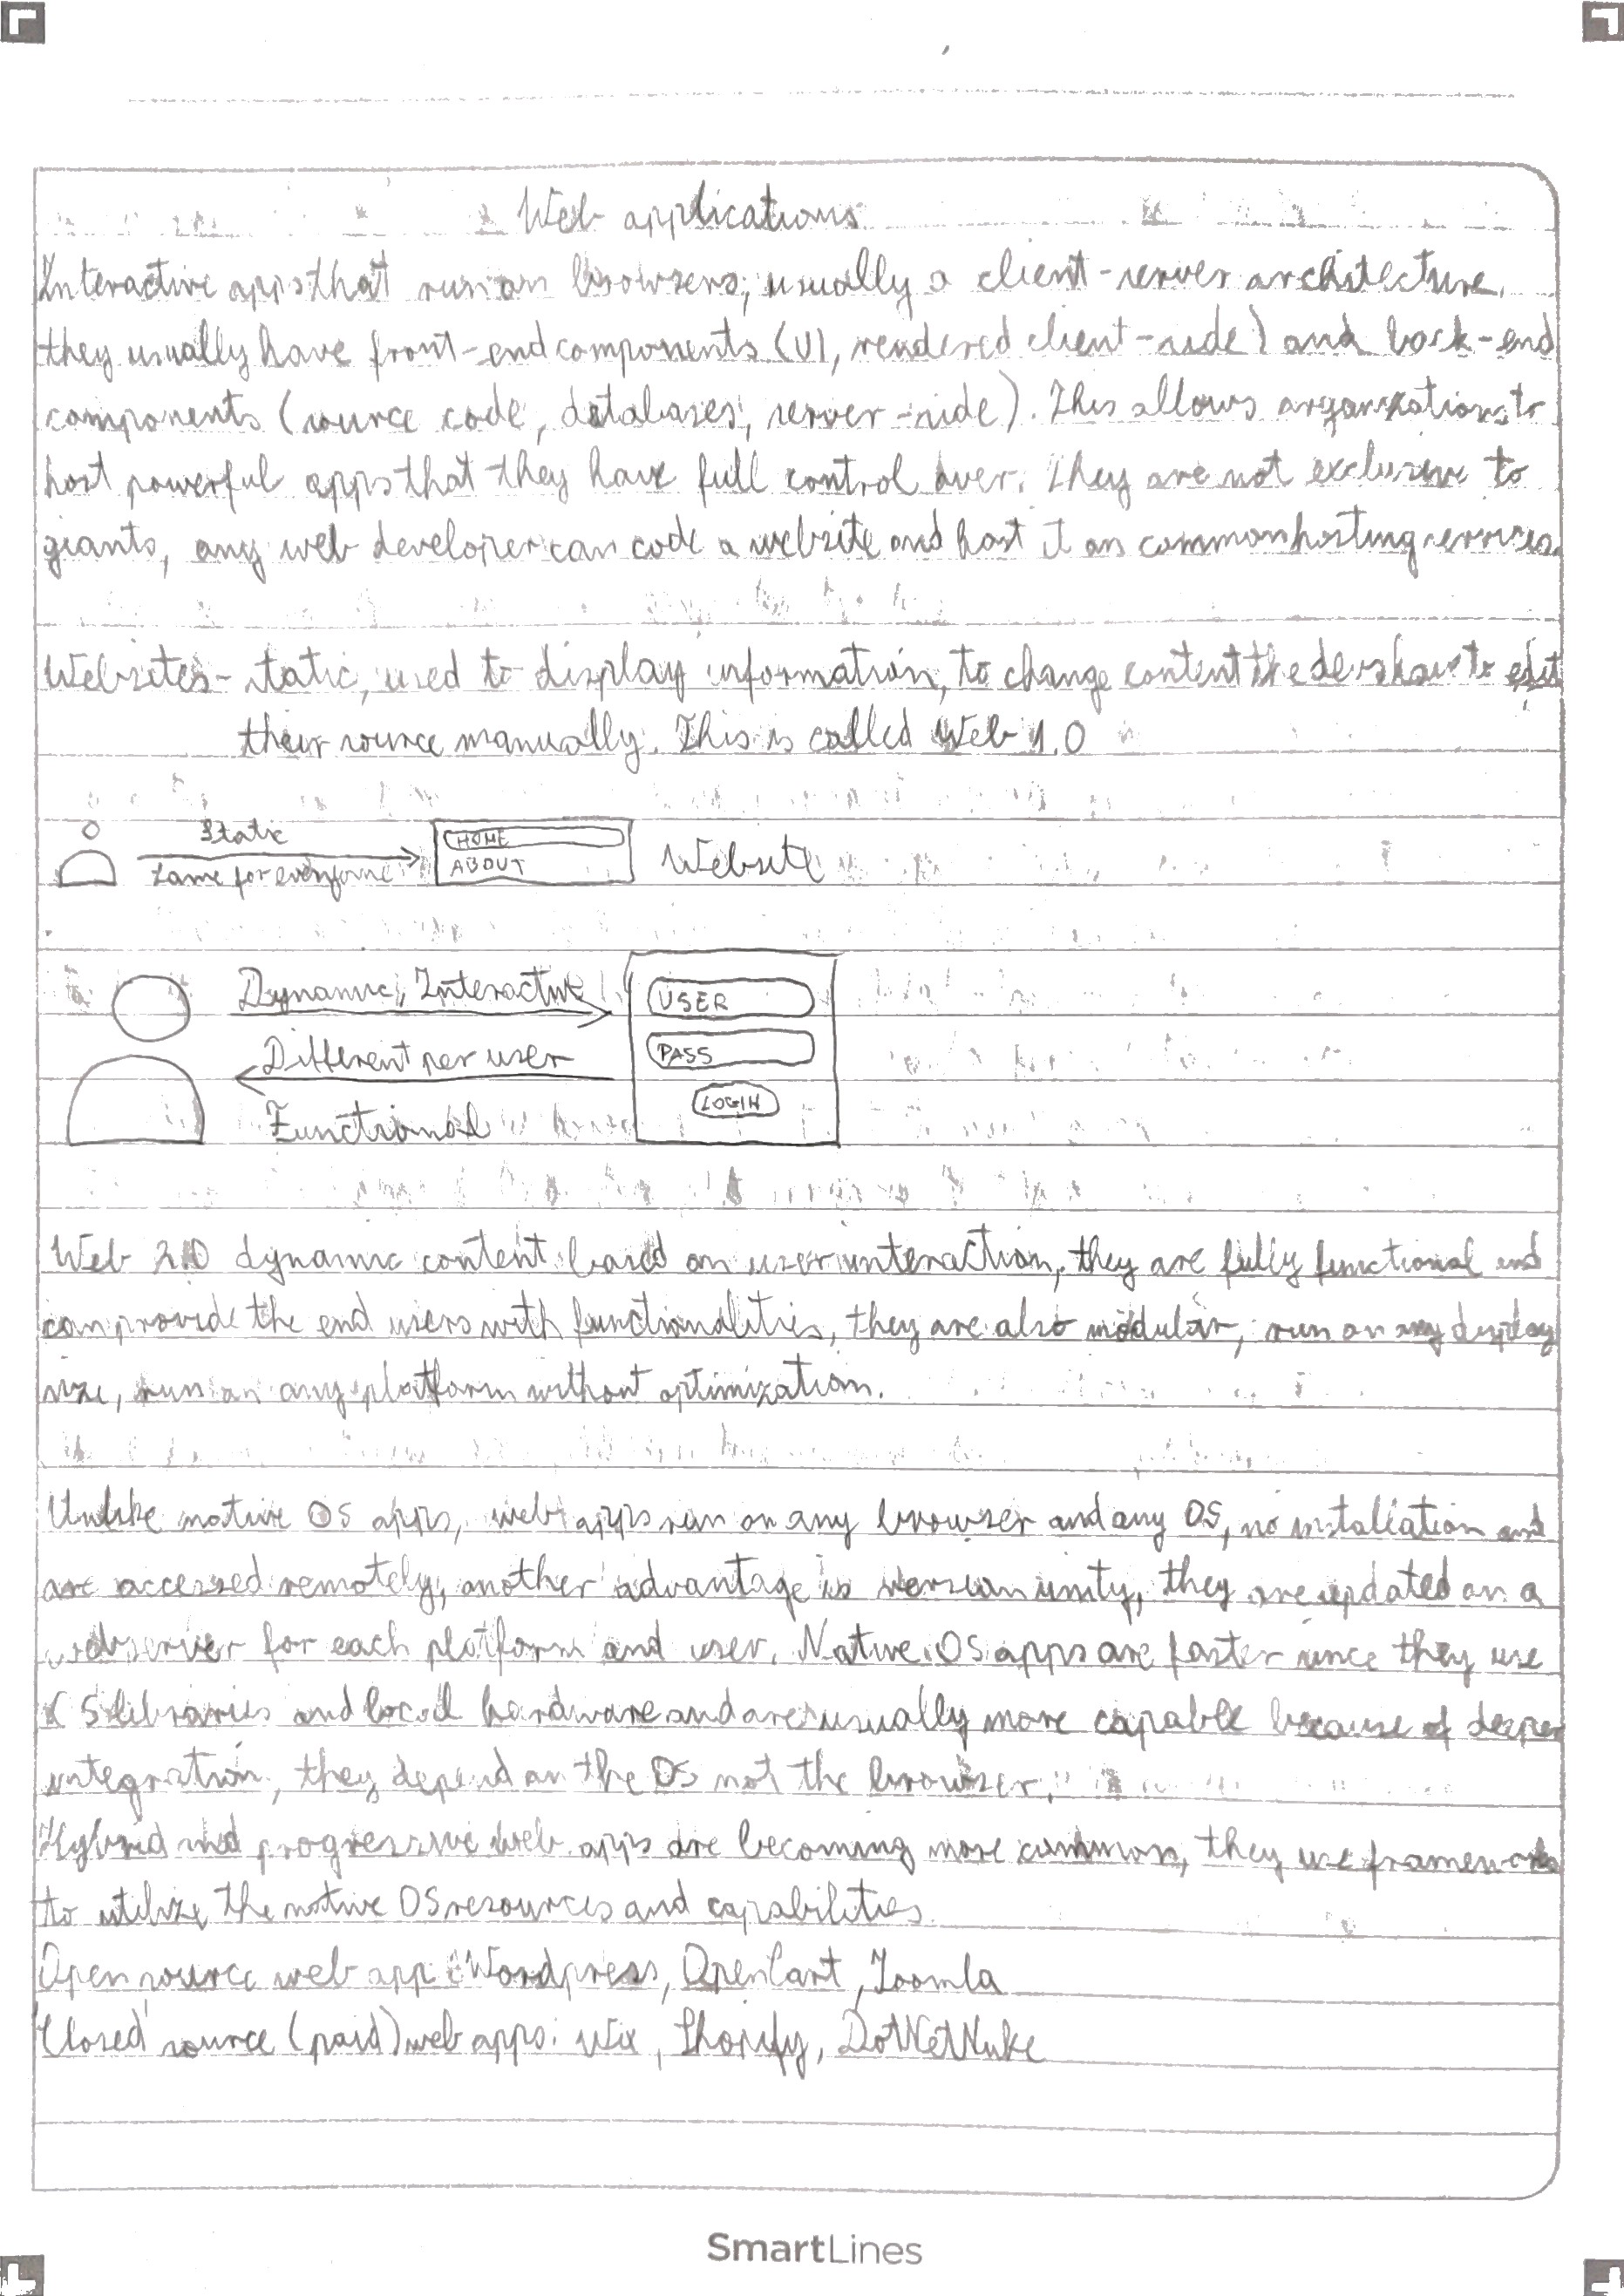 Web applications
Interactive apps that run on browsers, usually a client-server architecture,
they usually have front-end components (UI, rendered client-side) and back-end
components (source code, databases, server-side). This allows organizations to
host powerful apps that they have full control over. They are not exclusive to
giants, any web developer can code a website and host it on common hosting services.
Websites - static, used to display information, to change content the devs have to edit
their source manually. This is called Web 1.0
Static
Same for everyone
HOME
ABOUT
Website
Dynamic, Interactive
Different per user
Functional
USER
PASS
LOGIN
Web 2.0 dynamic content based on user interaction, they are fully functional and
can provide the end users with functionalities, they are also modular, run on any display
size, run on any platform without optimization.
Unlike native OS apps, web apps run on any browser and any OS, no installation and
are accessed remotely, another advantage is version unity, they are updated on a
webserver for each platform and user. Native OS apps are faster since they use
OS libraries and local hardware and are usually more capable because of deeper
integration, they depend on the OS not the browser.
Hybrid and progressive web apps are becoming more common, they use frameworks
to utilize the native OS resources and capabilities.
Open source web app: Wordpress, OpenCart, Joomla
Closed source (paid) web apps: Wix, Shopify, DotNetNuke
SmartLines